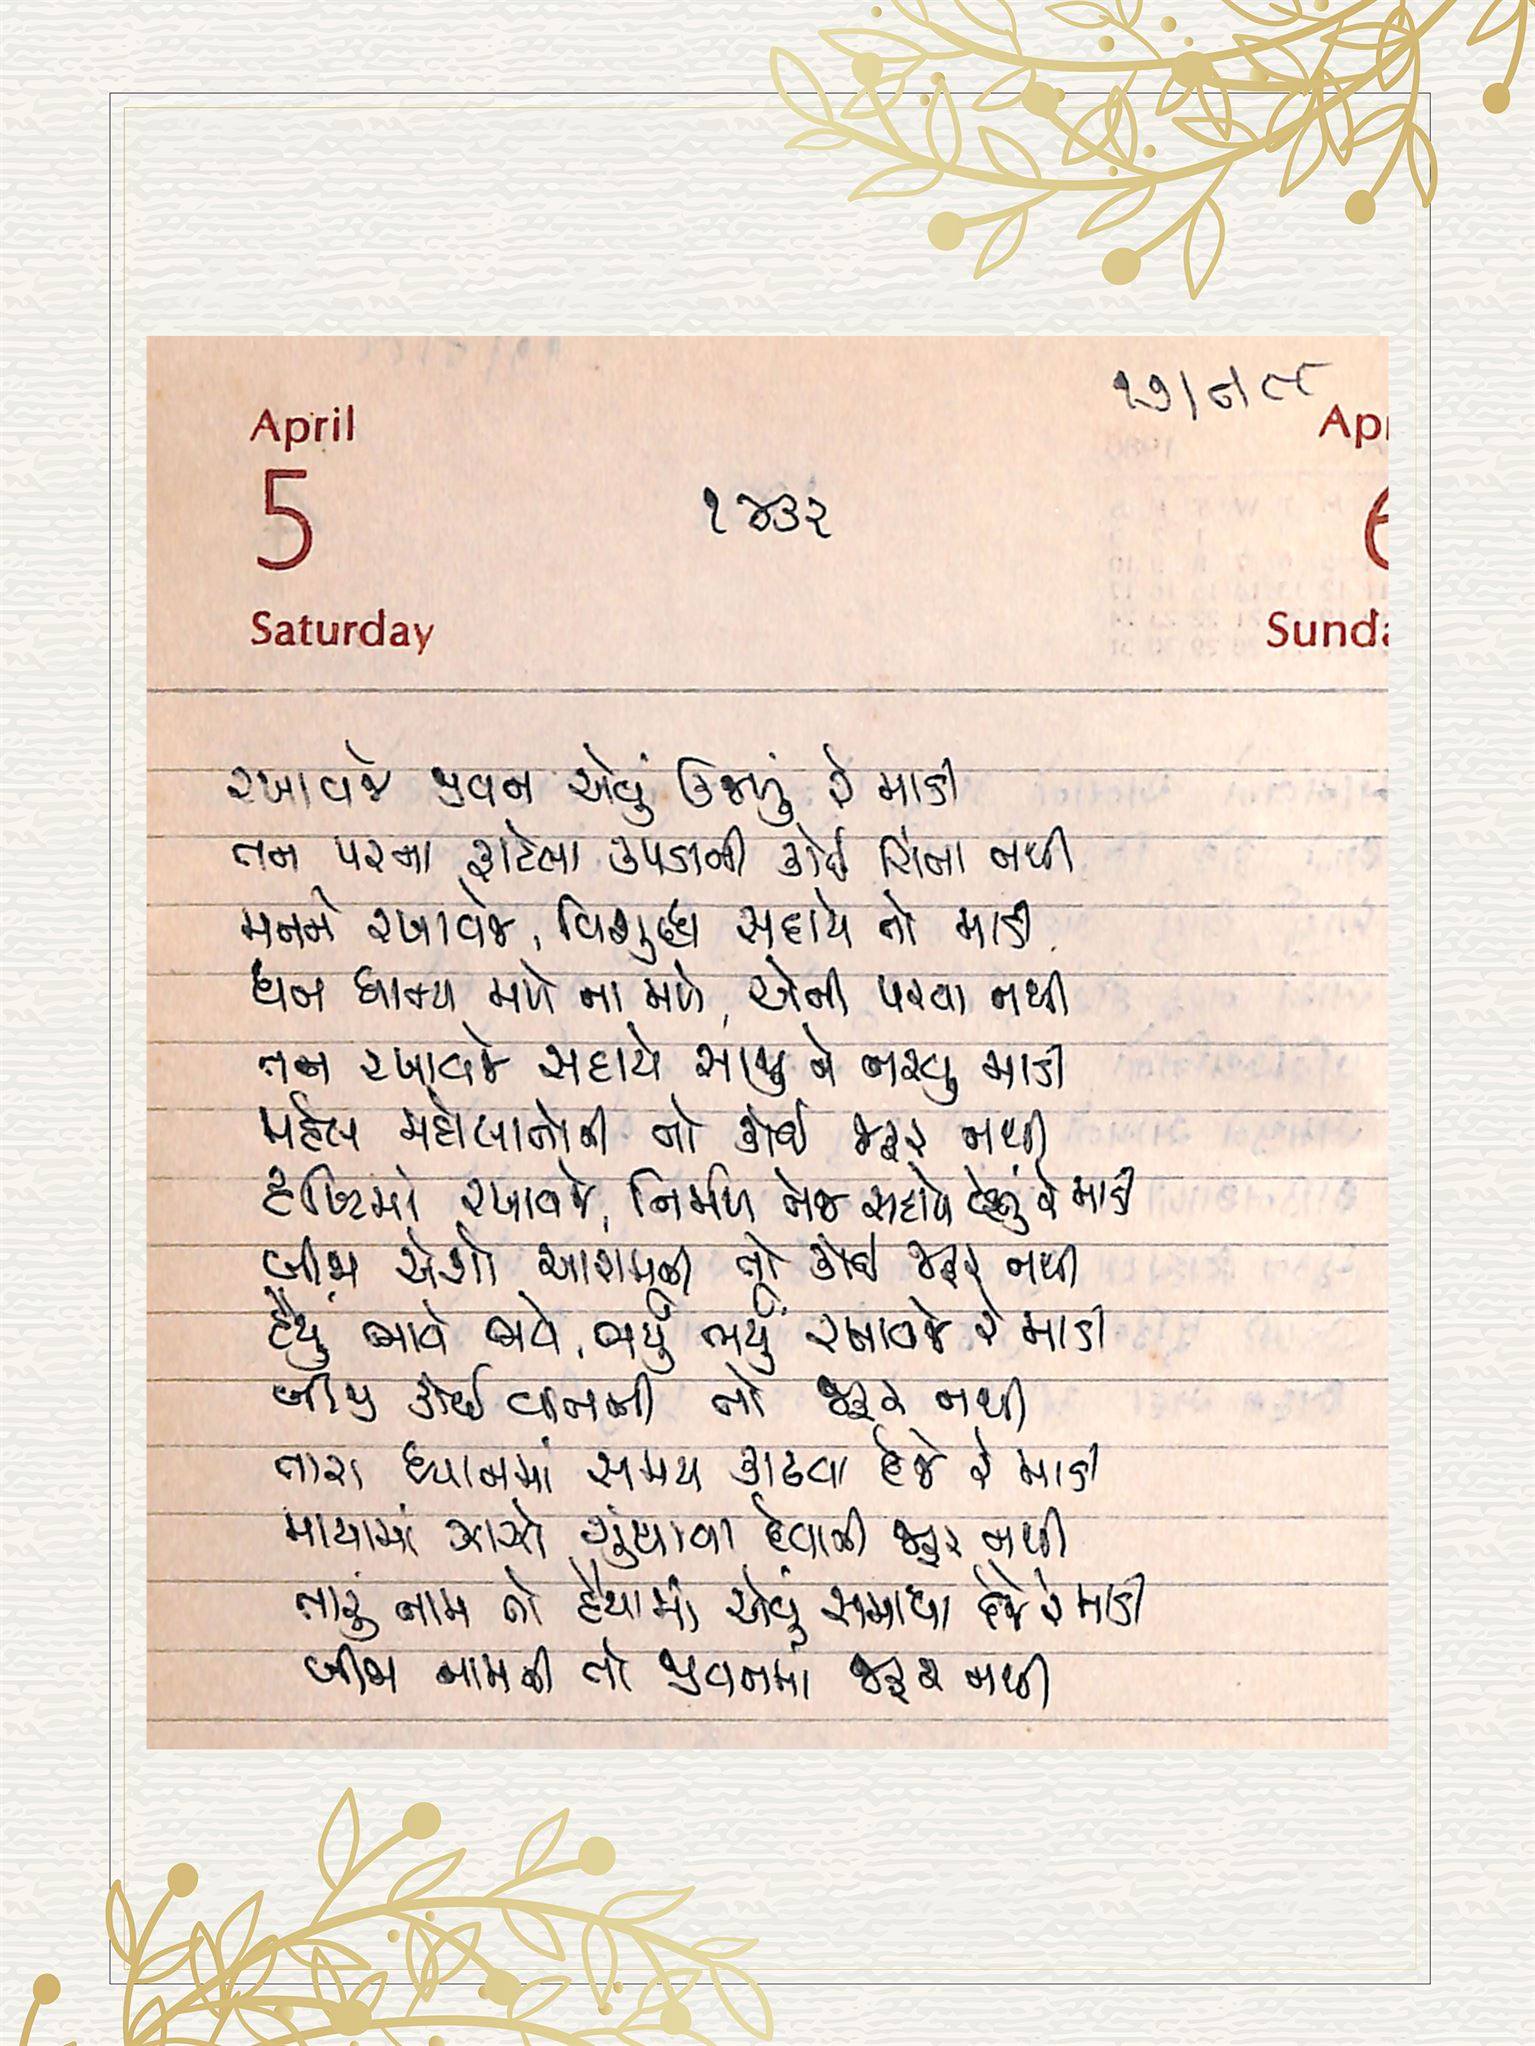 April
5
Saturday
૧૪૩૨
Apr
6
Sunda
રખાવજે જીવન એવું ઉજળું રે માડી
તન પરના ફાટેલા કપડાની કોઈ ચિંતા નથી
મનને રખાવજે, વિશુદ્ધ સદાયે તો માડી
ધન ધાન્ય મળે ના મળે, એની પરવા નથી
તન રખાવજે સદાયે સાજુ ને નરવુ માડી
મહેલ મહોલાતોની તો કોઈ જરૂર નથી
દૃષ્ટિમાં રખાવજે, નિર્મળ તેજ સદાયે દેજે તું રે માડી
બીજી એશો આરામની તો કોઈ જરૂર નથી
હૈયું ભાવે ભાવે, ભર્યું ભર્યું રખાવજે રે માડી
બીજી કોઈ વાતની તો જરૂર નથી
તારા ધ્યાનમાં સમય કાઢવા દેજે રે માડી
માયામાં ઝાઝો ગુંથાવા દેવાની જરૂર નથી
તારું નામ તો હૈયામાં એવું સમાવા દેજે રે માડી
બીજા નામની તો જીવનમાં જરૂર નથી